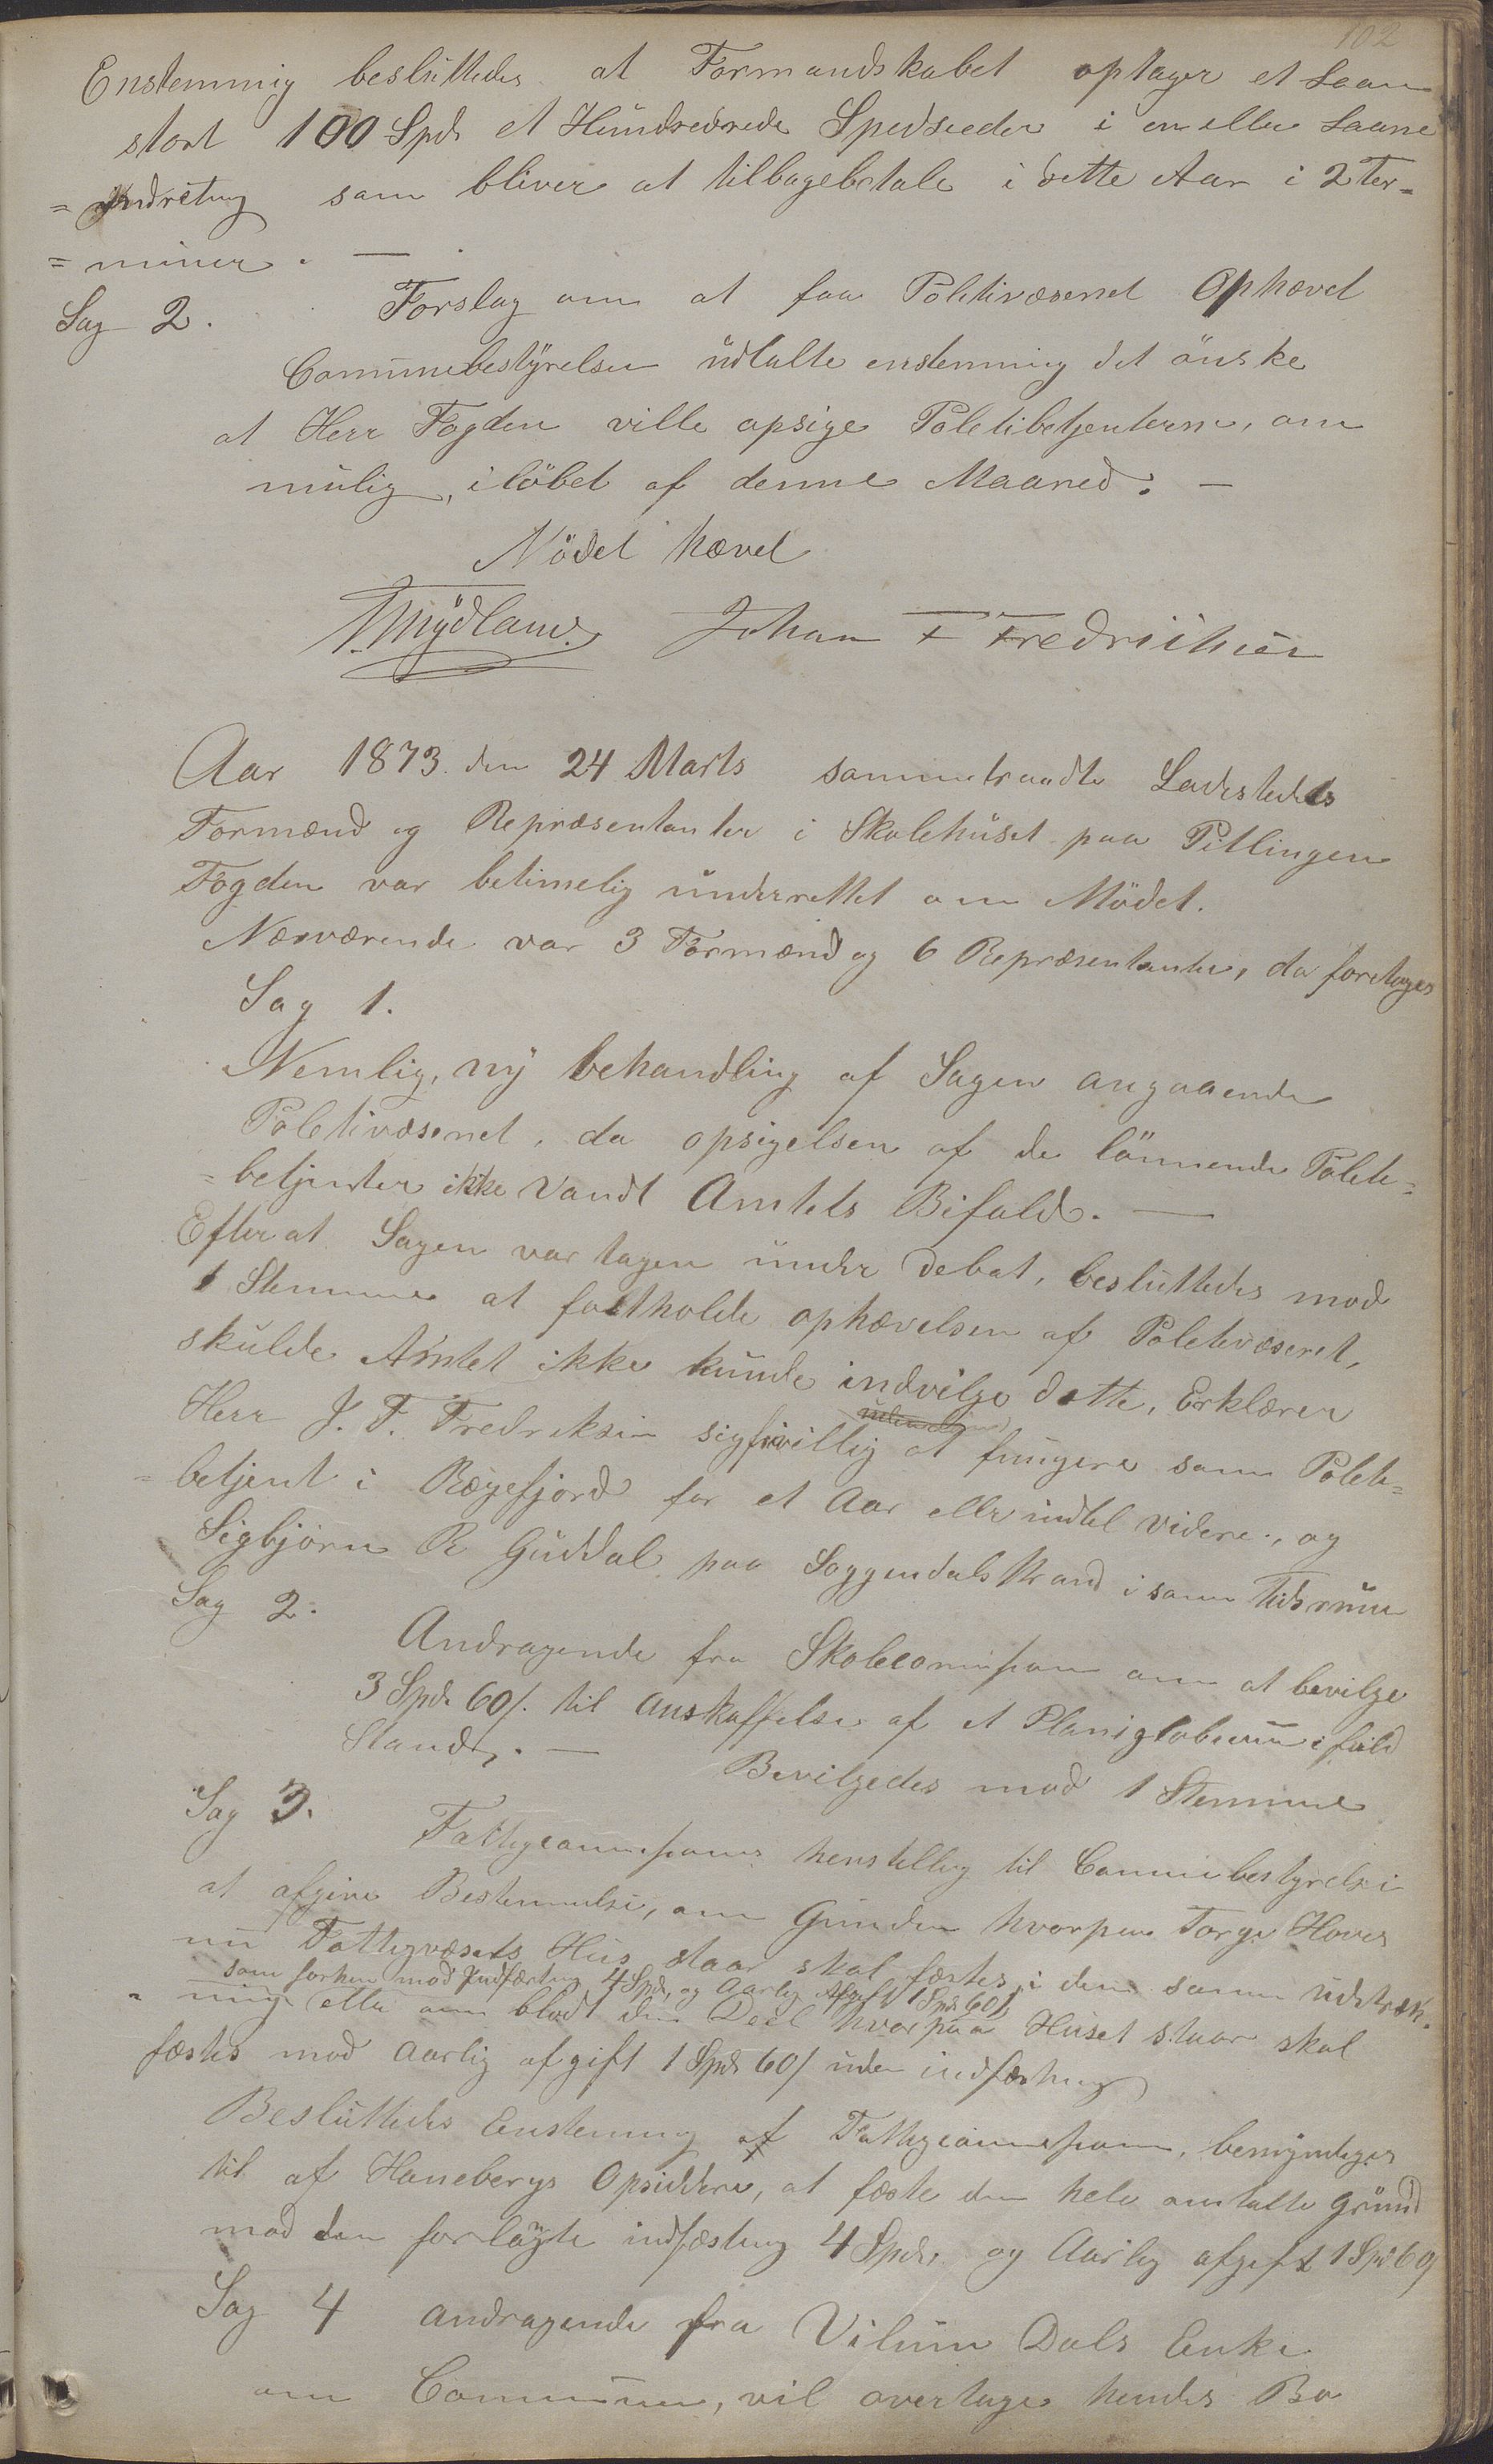 102
Enstemmig besluttedes at Formandskabet optager et Laan
stort 100 Spd. et Hundredrede Spedseeder i en eller Laane
=indretng som bliver at tilbagebetale i dette Aar i 2 Ter=
=miner. —
Sag 2. Forslag om at faa Poletivæsenet Ophævet
Communebestyrelsen udtalte enstemmig det önske
at Herr Fogden ville opsige Poletibetjenterne, om
mulig, i löbet af denne Maaned. —
Mödet hævet
Mydland. Johan F Fredriksen
Aar 1873 den 24 Marts sammentraadte Ladestedets
Formænd og Repræsentanter i Skolehuset paa Pitlingen
Fogden var betimelig underrettet om Mödet.
Nærværende var 3 Formænd og 6 Repræsentanter, da foretages
Sag 1.
Nemlig, ny behandling af Sagen angaaende
Poletivæsenet, da opsigelsen af de lönnende Polete=
=betjenter ikke vandt Amtets Bifald. —
Efter at Sagen var tagen under debat, besluttedes mod
1 Stemme at fastholde ophævelsen af Poletivæsenet,
skulde Amtet ikke kunde indvilge dette, Erklærer
Herr J. F. Fredriksen sig frivillig at fungere som Polete=
=betjent i Rægefjord for et Aar eller indtil videre, og
Sigbjörn R Guddal paa Soggendalstrand i samme Tidsrum
Sag 2. Andragende fra Skolecomissionen om at bevilge
3 Spd. 60/. til anskaffelse af et Planiglobium i fuld
Stand. — Bevilgedes mod 1 Stemme
Sag 3. Fattigcommisionens henstilling til Communebestyrelsen
at afgive Bestemmelse, om Grunden hvorpaa Torge Hoves
nu Fattigvæsets Hus staar skal fæstes i den samme udstræk=
som forhen mod Indfæstng 4 Spd. og Aarlig Afgift 1 Spd 60/
=ning eller om blodt den Deel hvorpaa Huset staar skal
fæstes mod aarlig afgift 1 Spd 60/ uden indfæstning
Besluttedes Enstemmig at Fattigcommisionen, bemyndiges
til af Hanebergs Opsiddere, at fæste den hele omtalte grund
mod den forlangte indfæstng 4 Spd. og Aarlig afgift 1 Spd 60/
Sag 4 andragende fra Vilum Dals Enke
om Communen, vil overtage hendes Bo